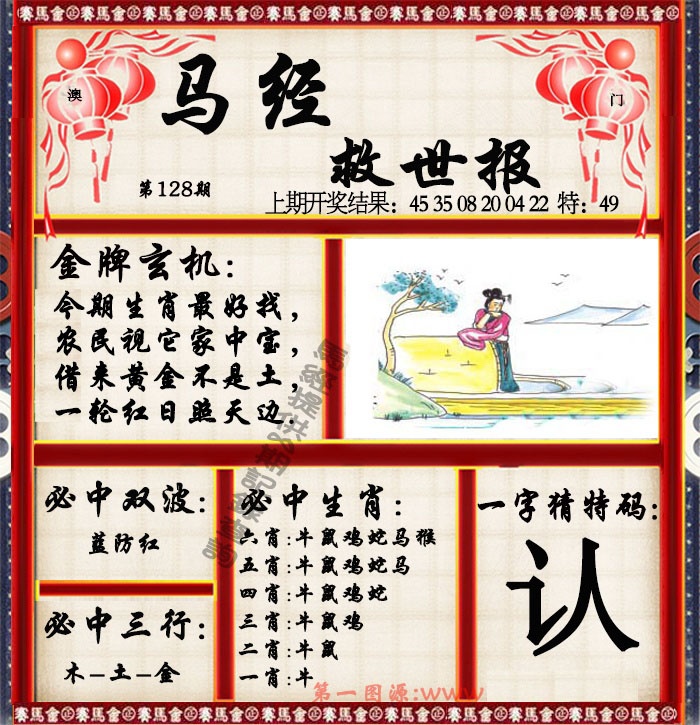 賽馬會金正賽馬會金正賽馬會金正賽馬會金正賽馬會金
澳
门
马经
救世报
第128期
上期开奖结果：45 35 08 20 04 22 特：49
金牌玄机：
今期生肖最好找，
农民视它家中宝，
借来黄金不是土，
一轮红日照天边.
必中双波：
蓝防红
必中三行：
木－土－金
必中生肖：
六肖：牛鼠鸡蛇马猴
五肖：牛鼠鸡蛇马
四肖：牛鼠鸡蛇
三肖：牛鼠鸡
二肖：牛鼠
一肖：牛
一字猜特码：
认
第一图源:www